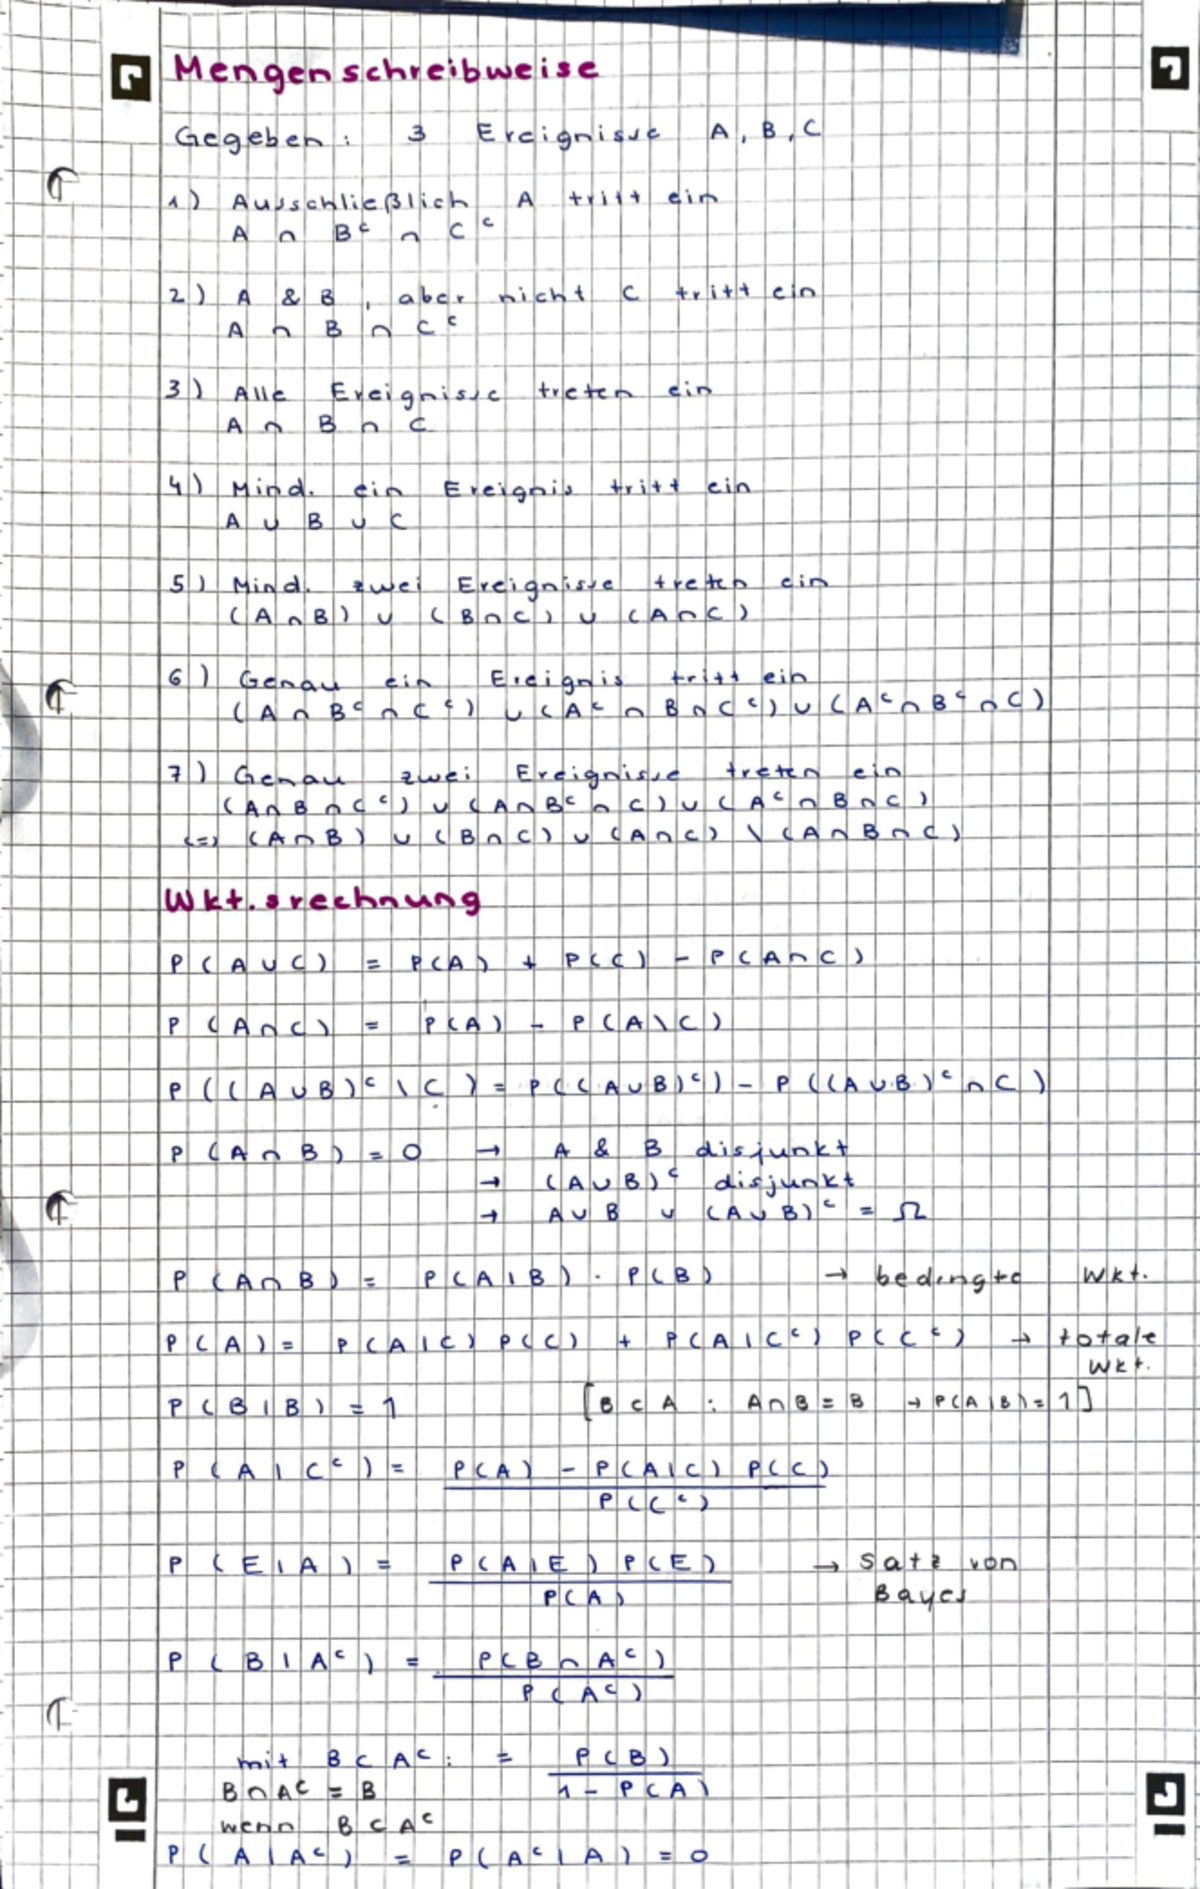 Mengenschreibweise
Gegeben: 3 Ereignisse A, B, C
1) Ausschließlich A tritt ein
A ∩ Bᶜ ∩ Cᶜ
2) A & B, aber nicht C tritt ein
A ∩ B ∩ Cᶜ
3) Alle Ereignisse treten ein
A ∩ B ∩ C
4) Mind. ein Ereignis tritt ein
A ∪ B ∪ C
5) Mind. zwei Ereignisse treten ein
(A∩B) ∪ (B∩C) ∪ (A∩C)
6) Genau ein Ereignis tritt ein
(A ∩ Bᶜ ∩ Cᶜ) ∪ (Aᶜ ∩ B ∩ Cᶜ) ∪ (Aᶜ ∩ Bᶜ ∩ C)
7) Genau zwei Ereignisse treten ein
(A∩B∩Cᶜ) ∪ (A∩Bᶜ∩C) ∪ (Aᶜ∩B∩C)
<=> (A∩B) ∪ (B∩C) ∪ (A∩C) \ (A∩B∩C)
Wkt.srechnung
P(A∪C) = P(A) + P(C) - P(A∩C)
P(A∩C) = P(A) - P(A\C)
P((A∪B)ᶜ\C) = P((A∪B)ᶜ) - P((A∪B)ᶜ∩C)
P(A∩B) = 0 → A & B disjunkt
→ (A∪B)ᶜ disjunkt
→ A∪B ∪ (A∪B)ᶜ = Ω
P(A∩B) = P(A|B) · P(B) → bedingte Wkt.
P(A) = P(A|C) P(C) + P(A|Cᶜ) P(Cᶜ) → totale
Wkt.
P(B|B) = 1 [B⊂A : A∩B = B → P(A|B) = 1]
P(A|Cᶜ) = P(A) - P(A|C) P(C)
P(Cᶜ)
P(E|A) = P(A|E) P(E) → Satz von
P(A) Bayes
P(B|Aᶜ) = P(B∩Aᶜ)
P(Aᶜ)
mit B⊂Aᶜ: = P(B)
B∩Aᶜ = B 1 - P(A)
wenn B⊂Aᶜ
P(A|Aᶜ) = P(Aᶜ|A) = 0